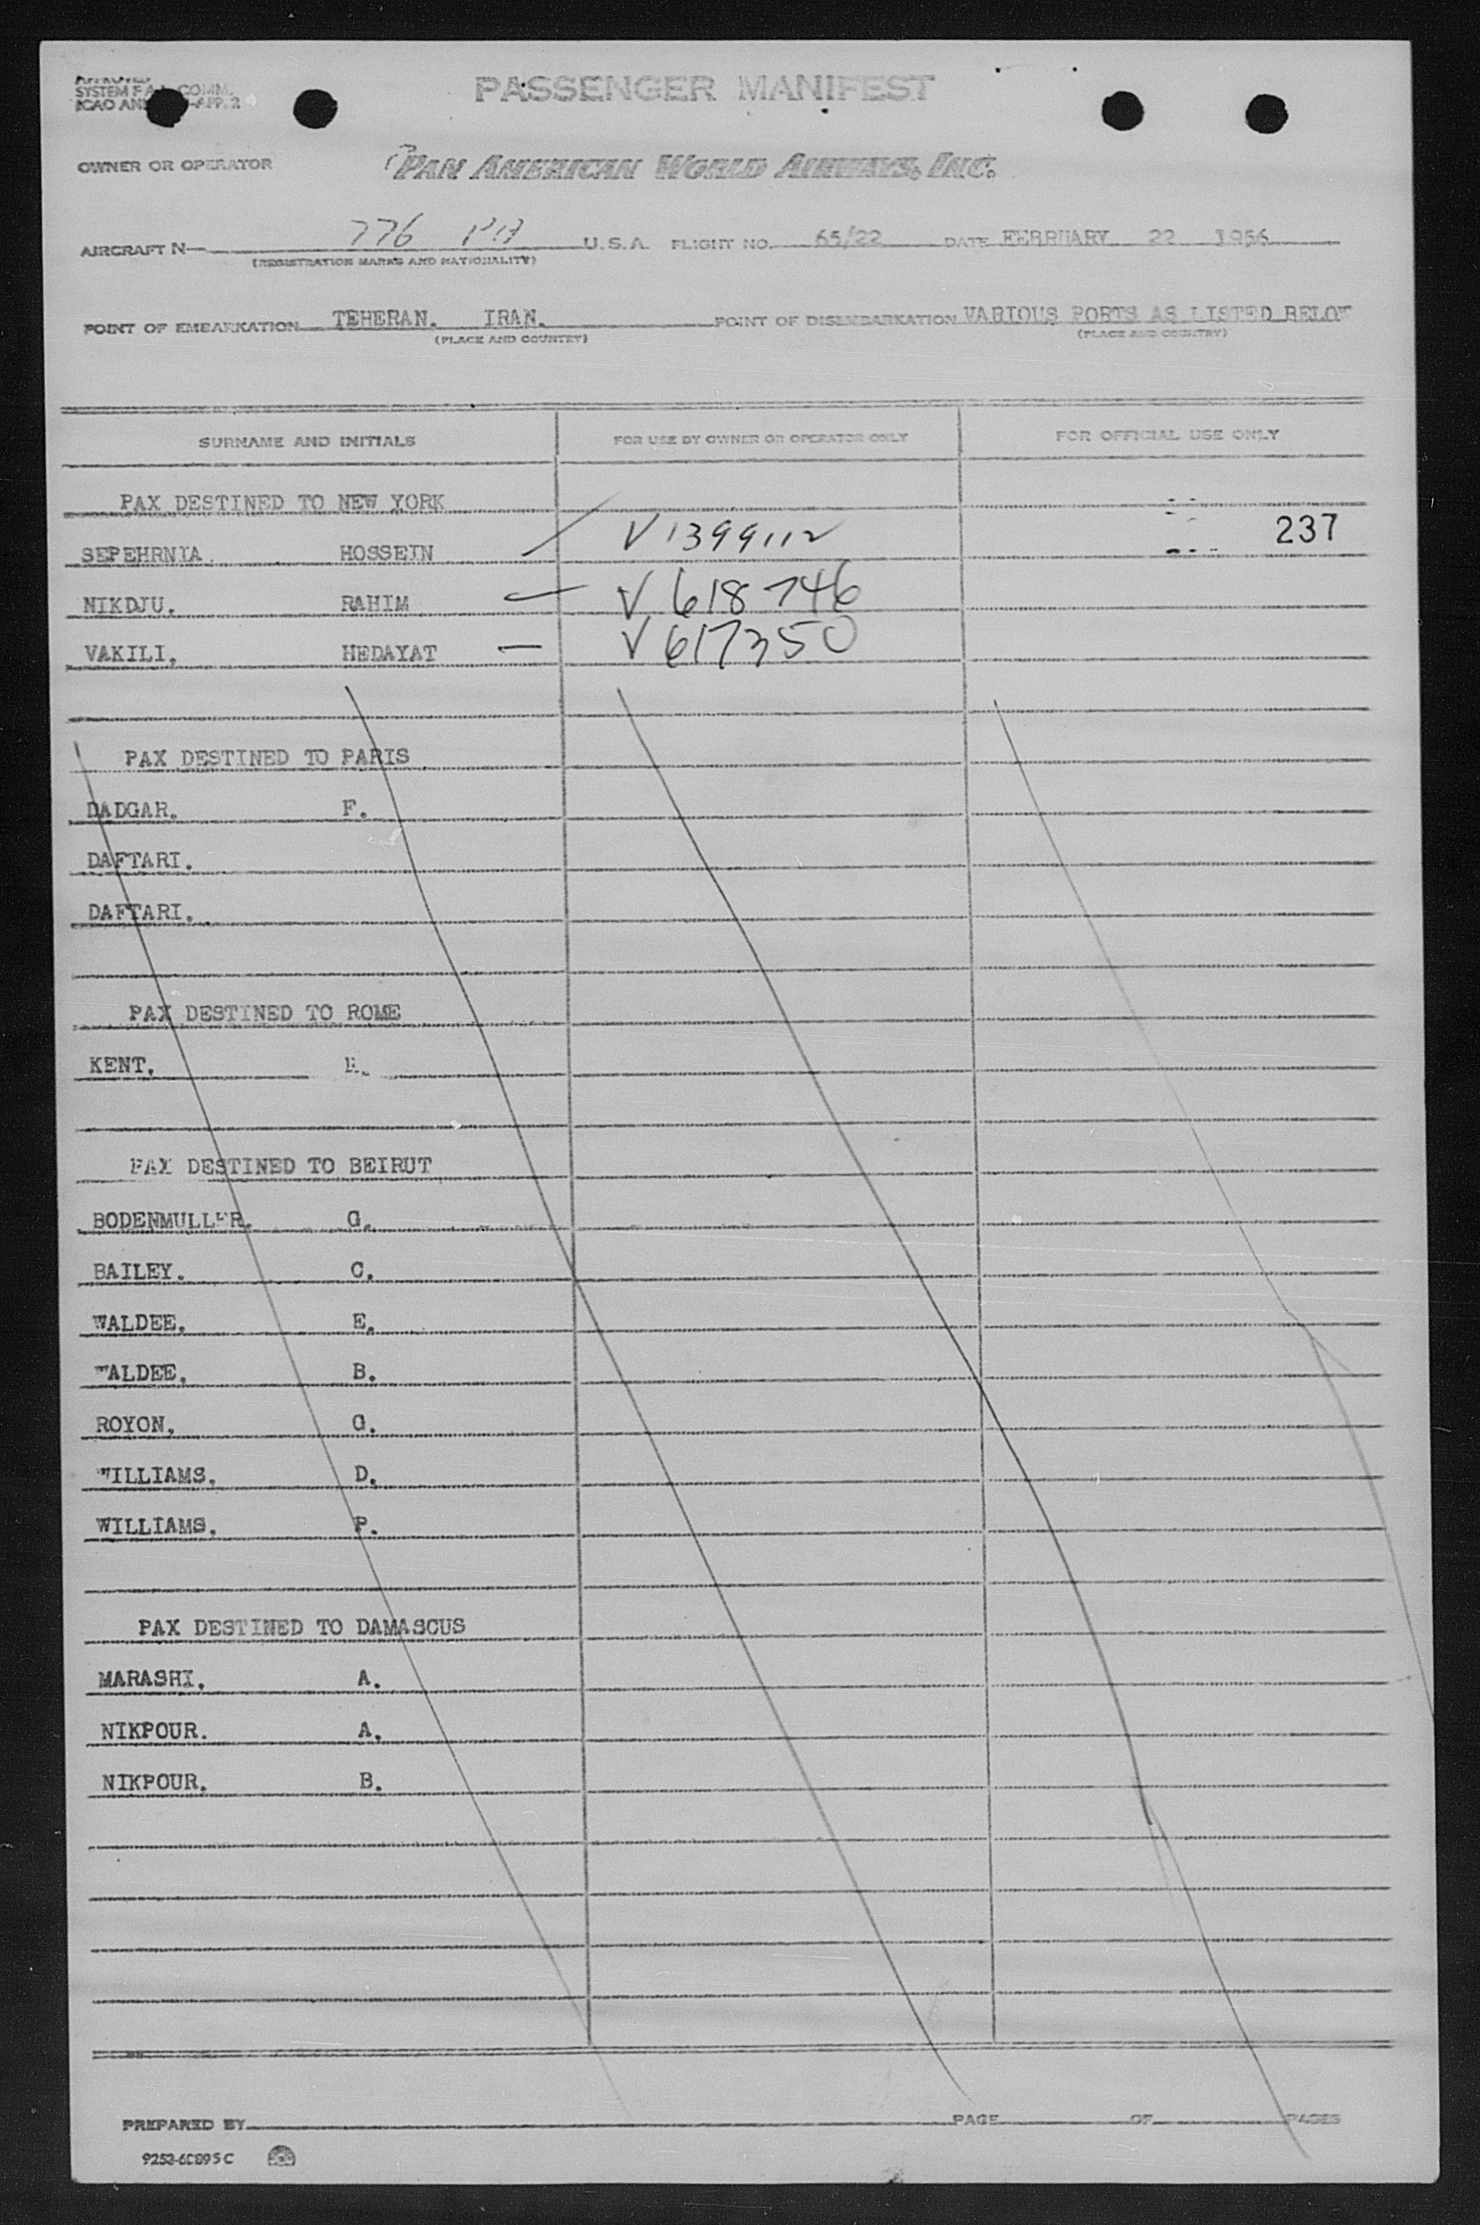 APPROVED
SYSTEM F A L COMM.
ICAO -APP. 2
PASSENGER MANIFEST
OWNER OR OPERATOR PAN AMERICAN WORLD AIRWAYS, INC.
AIRCRAFT N 776 PA U.S.A. FLIGHT NO. 65/22 DATE FEBRUARY 22 1956
(REGISTRATION MARKS AND NATIONALITY)
POINT OF EMBARKATION TEHERAN. IRAN. POINT OF DISEMBARKATION VARIOUS PORTS AS LISTED BELOW
(PLACE AND COUNTRY) (PLACE AND COUNTRY)
SURNAME AND INITIALS FOR USE BY OWNER OR OPERATOR ONLY FOR OFFICIAL USE ONLY
PAX DESTINED TO NEW YORK
SEPEHRNIA. HOSSEIN V1399112 237
NIKDJU. RAHIM V 618746
VAKILI, HEDAYAT V 617350
PAX DESTINED TO PARIS
DADGAR. F.
DAFTARI.
DAFTARI.
PAX DESTINED TO ROME
KENT,
PAX DESTINED TO BEIRUT
BODENMULLER. G.
BAILEY. C.
WALDEE. E.
WALDEE, B.
ROYON, G.
WILLIAMS. D.
WILLIAMS. P.
PAX DESTINED TO DAMASCUS
MARASHI. A.
NIKPOUR. A.
NIKPOUR. B.
PREPARED BY PAGE OF PAGES
9252-6C895C